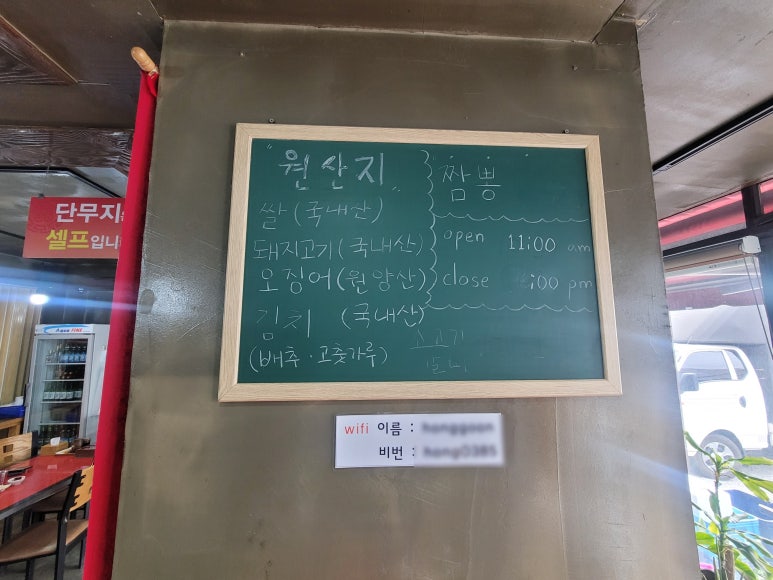 "원산지"
쌀 (국내산)
돼지고기 (국내산)
오징어 (원양산)
김치 (국내산)
(배추 · 고춧가루)
짬뽕
open 11:00 am
close :00 pm
wifi 이름 :
비번 :
단무지
셀프입니